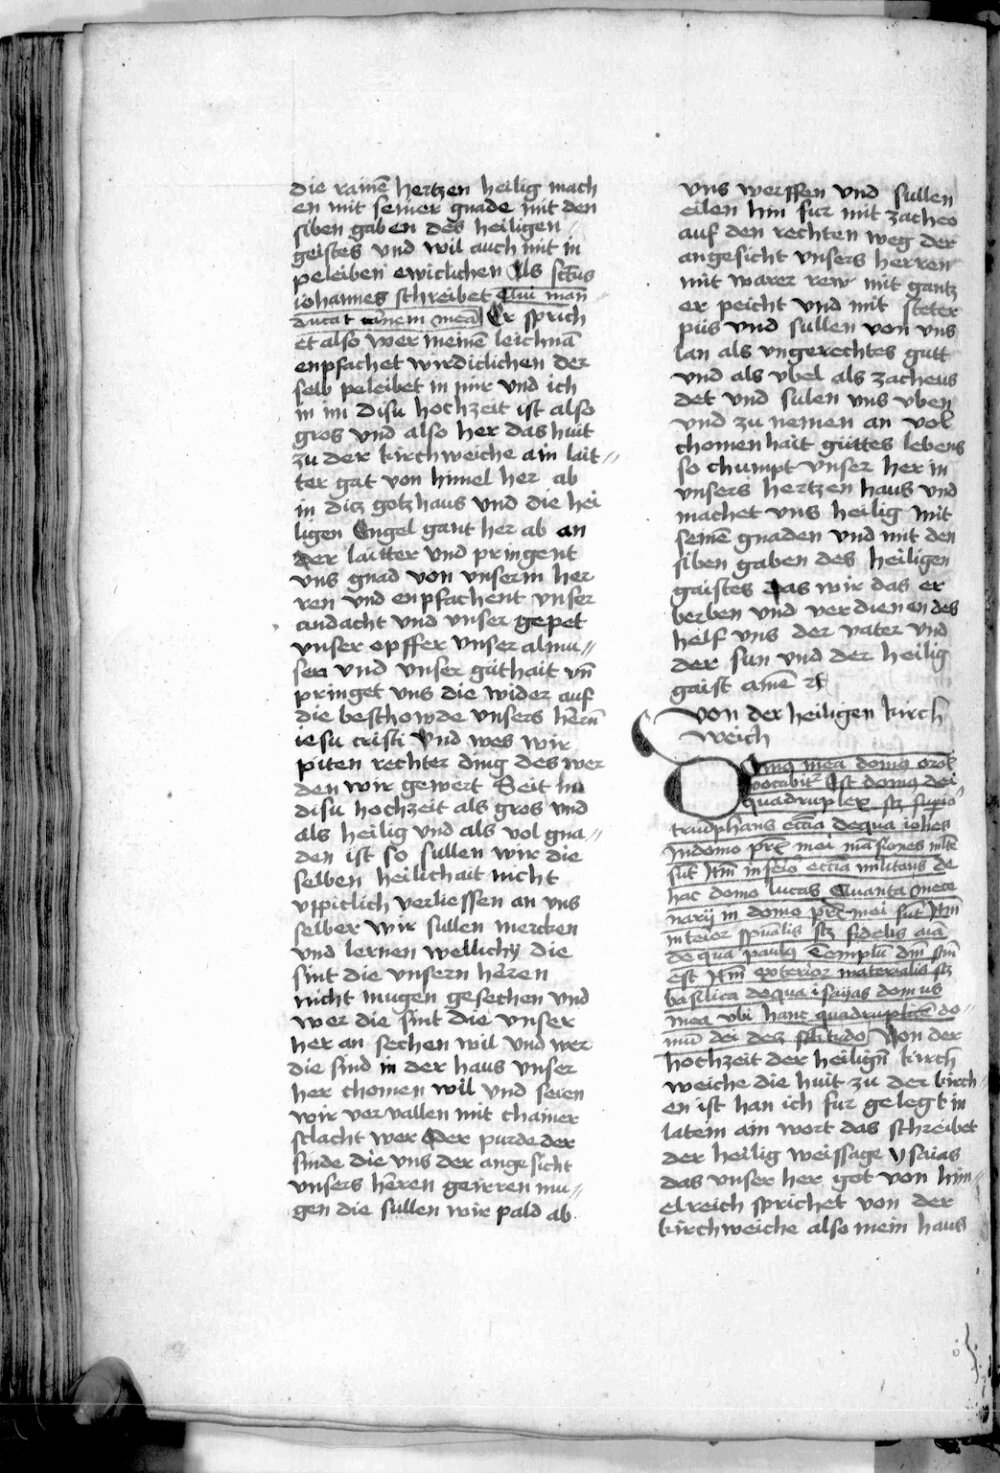 die rainē hertzen heilig mach
en mit seiner gnade mit den
siben gaben des heiligen
geistes vnd wil auch mit in
peleiben ewiclichen Als sctus
iohannes schreibet Qui man
ducat carnem meā Er sprich
et also wer meinē leichnā
enpfachet wirdiclichen der
selb peleibet in mir vnd ich
in im disu hochzeit ist also
gros vnd also her das huit
zu der kirchweiche ain lait
ter gat von himel her ab
in ditz gotzhaus vnd die hei
ligen Engel gant her ab an
der laitter vnd pringent
vns gnad von vnserm her
ren vnd enpfachent vnser
andacht vnd vnser gepet
vnser opffer vnser almu
sen vnd vnser guthait vn̄
pringet vns die wider auf
die beschowde vnsers herrn̄
iesu cristi Vnd wes wir
piten rechter ding des wer
den wir gewert Seit nu
disu hochzeit als gros vnd
als heilig vnd als vol gna
den ist so sullen wir die
selben heilichait nicht
vppiclich verliessen an vns
selber wir sullen mercken
vnd lernen wellichy die
sint die vnsern herren
nicht mugen gesechen vnd
wer die sint die vnser
her an sechen wil vnd wer
die sind in der haus vnser
her chomen wil vnd seien
wir vervallen mit chainer
sclacht wer Oder purde der
sinde die vns der angesicht
vnsers herren geirren mu
gen die sullen wir pald ab
vns werffen vnd sullen
eilen hin fur mit zacheo
auf den rechten weg der
angesicht vnsers herren
mit warer rew mit gantz
er peicht vnd mit steter
pus vnd sullen von vns
lan als vngerechtes gutt
vnd als vbel als zacheus
det vnd sulen vns vben
vnd zu nemen an vol
chomenhait guttes lebens
so chumpt vnser her in
vnsers hertzen haus vnd
machet vns heilig mit
seinē gnaden vnd mit den
siben gaben des heiligen
gaistes Das wir das er
berben vnd verdienen des
helf vns der vater vnd
der sun vnd der heilig
gaist amē
von der heiligen kirch
weich
Domus mea domus
vocabit᷑ Est domus dei
quadruplex
triūphans eccīa de qua iohes
In domo
hac domo lucas Quanta merce
narij in domo
de qua paulus Templū
est exterior materialis
basilica de qua isaijas domus
mea vbi hanc
Von der
hochzeit der heilign̄ kirch
weiche die huit zu der kirch
en ist han ich fur gelegt in
latein ain wort das schreibet
der heilig weissage ysaias
das vnser her got von him
elreich sprichet von der
kirchweiche also mein haus